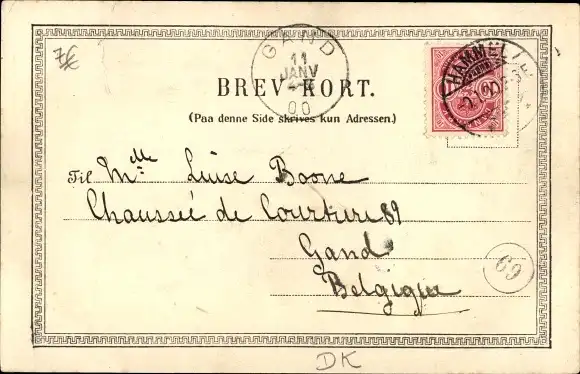 7€
GAND
11
JANV
00
HAMMEL
BREV-KORT.
(Paa denne Side skrives kun Adressen.)
Til Mlle Luise Boone
Chausseé de Courture 89
Gand
Belgique
69
DK